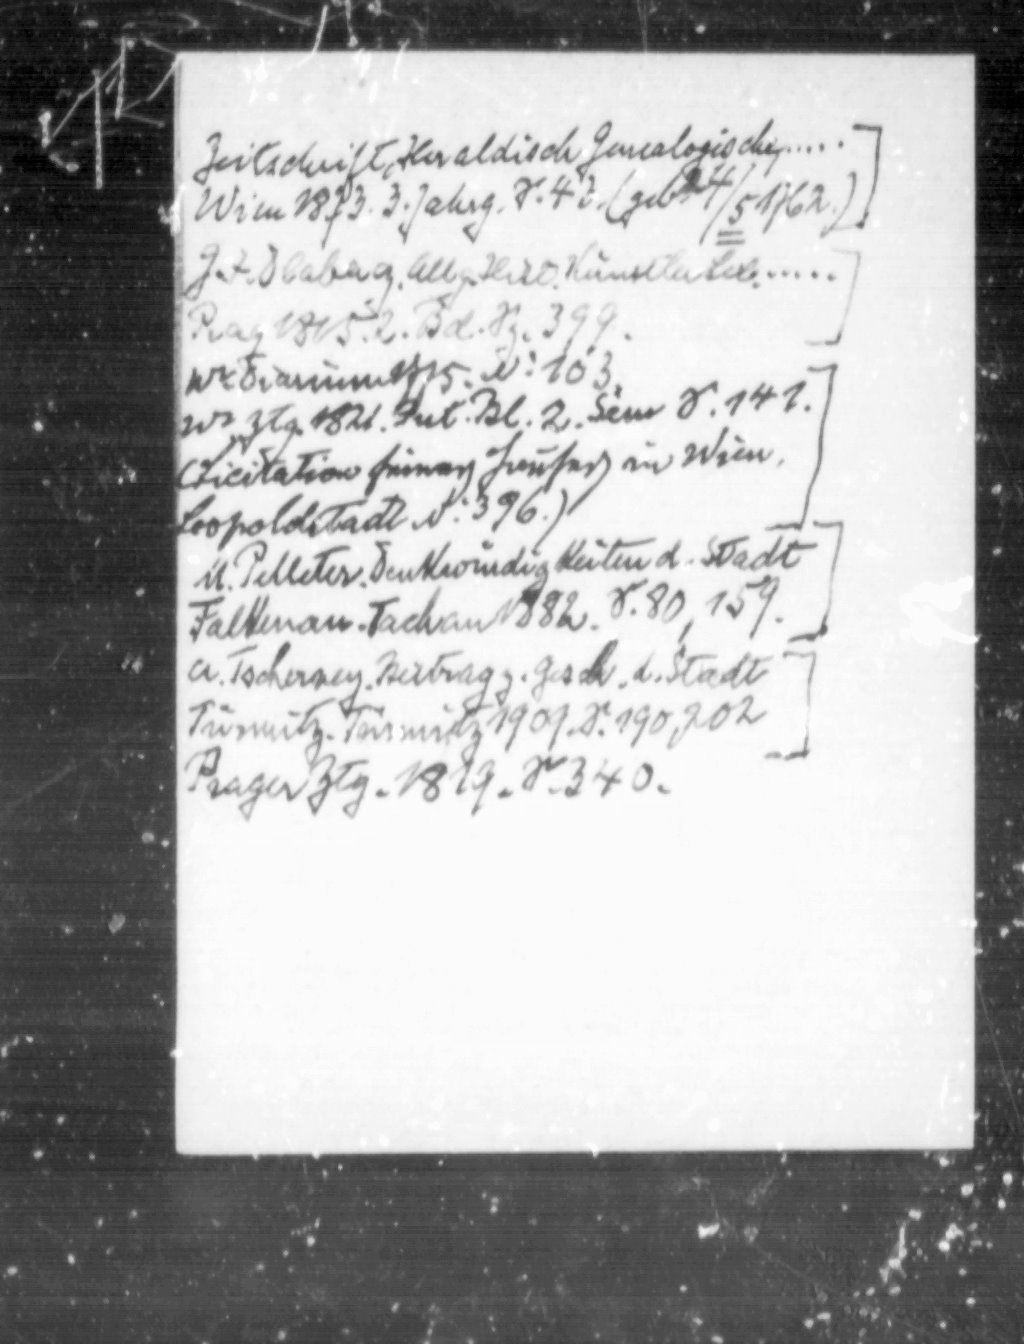 Zeitschrift, Heraldisch Genealogische, .....
Wien 1873. 3. Jahrg. S. 42. (geb. 24/5 1762.)
G. J. Dlabacž. Allg. Hist. Künstler Lex. .....
Prag 1815. 2. Bd. Sp. 399.
Wr. Diarium 1775. N: 103.
Wr Ztg. 1821. Int. Bl. 2. Sem S. 141.
(Licitation seines Hauses in Wien,
Leopoldstadt N: 396.)
M. Pelleter. Denkwürdigkeiten d. Stadt
Falkenau. Tachau 1882. S. 80, 159.
A. Tscherney. Beitrag z. Gesch. d. Stadt
Türmitz. Türmitz 1909. S. 190, 202
Prager Ztg. 1819. S. 340.